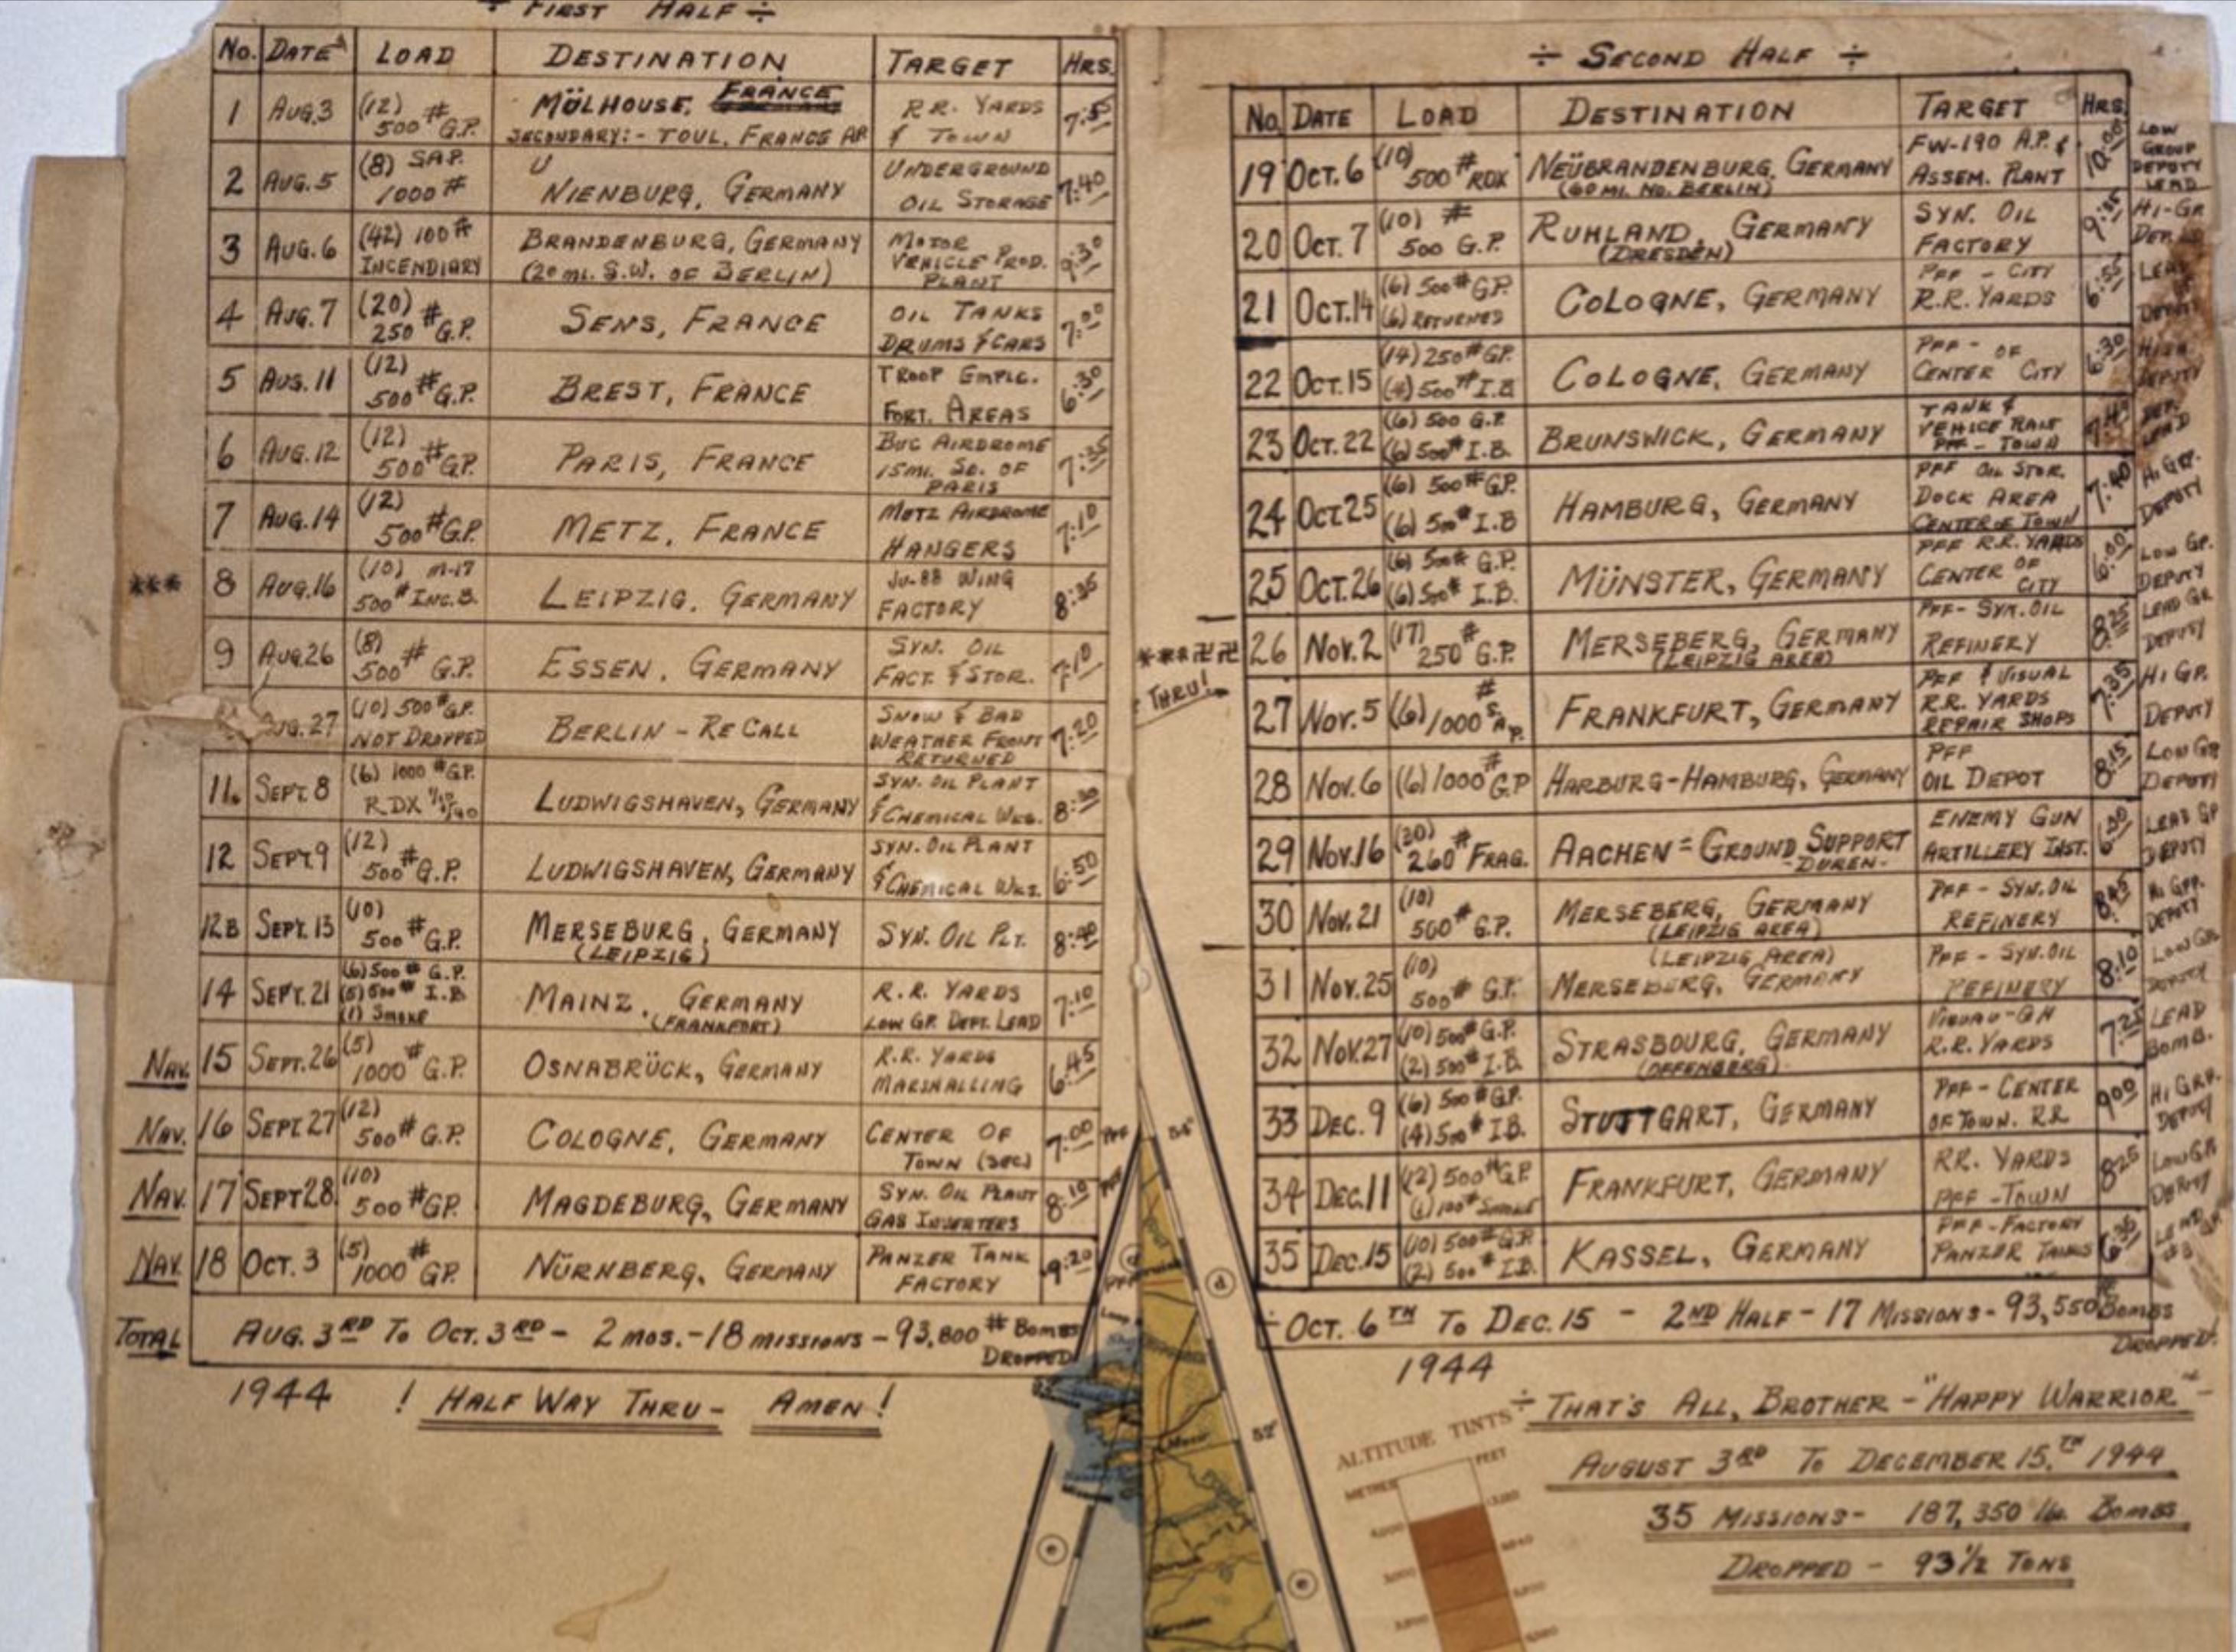 ÷ FIRST HALF ÷
No. DATE LOAD DESTINATION TARGET HRS.
1 AUG.3 (12) 500# G.P. MÜLHOUSE, FRANCE R.R. YARDS 7:55
SECONDARY:- TOUL, FRANCE AP & TOWN
2 AUG.5 (8) SAP. 1000# NIENBURG, GERMANY UNDERGROUND OIL STORAGE 7:40
3 AUG.6 (42) 100# INCENDIARY BRANDENBURG, GERMANY MOTOR VEHICLE PROD. PLANT 9:30
(20 MI. S.W. OF BERLIN)
4 AUG.7 (20) 250# G.P. SENS, FRANCE OIL TANKS DRUMS & CARS 7:00
5 AUG. 11 (12) 500# G.P. BREST, FRANCE TROOP EMPLC. FORT. AREAS 6:30
6 AUG.12 (12) 500# G.P. PARIS, FRANCE BUC AIRDROME 15 MI. SO. OF PARIS 7:35
7 AUG.14 (12) 500# G.P. METZ, FRANCE METZ AIRDROME HANGERS 7:10
*** 8 AUG.16 (10) M-17 500# INC.B. LEIPZIG, GERMANY JU-88 WING FACTORY 8:35
9 AUG.26 (8) 500# G.P. ESSEN, GERMANY SYN. OIL FACT. & STOR. 7:10
UG.27 (10) 500# GP. NOT DROPPED BERLIN - RECALL SNOW & BAD WEATHER FRONT RETURNED 7:20
11. SEPT.8 (6) 1000# G.P. RDX LUDWIGSHAVEN, GERMANY SYN. OIL PLANT & CHEMICAL WKS. 8:30
12 SEPT.9 (12) 500# G.P. LUDWIGSHAVEN, GERMANY SYN. OIL PLANT & CHEMICAL WKS. 6:50
12B SEPT. 13 (10) 500# G.P. MERSEBURG, GERMANY SYN. OIL PLT. 8:40
(LEIPZIG)
14 SEPT. 21 (6) 500# G.P. (5) 500# I.B (1) SMOKE MAINZ, GERMANY R.R. YARDS LOW GP. DEPT. LEAD 7:10
(FRANKFORT)
NAV. 15 SEPT.26 (5) 1000# G.P. OSNABRÜCK, GERMANY R.R. YARDS MARSHALLING 6:45
NAV. 16 SEPT.27 (12) 500# G.P. COLOGNE, GERMANY CENTER OF TOWN (SEC) 7:00 PFF
NAV. 17 SEPT28. (10) 500# GP. MAGDEBURG, GERMANY SYN. OIL PLANT GAS INVERTERS 8:10 PFF
NAV. 18 OCT. 3 (5) 1000# GP. NÜRNBERG, GERMANY PANZER TANK FACTORY 9:20
TOTAL AUG. 3RD TO OCT. 3RD - 2 MOS. - 18 MISSIONS - 93,800# BOMBS DROPPED
1944 ! HALF WAY THRU - AMEN !
÷ SECOND HALF ÷
No. DATE LOAD DESTINATION TARGET HRS.
19 OCT. 6 (10) 500# RDX NEÜBRANDENBURG, GERMANY FW-190 A.P. & ASSEM. PLANT 10:00 LOW GROUP DEPUTY LEAD
(60 MI. NO. BERLIN)
20 OCT. 7 (10) 500# G.P. RUHLAND, GERMANY SYN. OIL FACTORY 9:35 HI-GR
(DRESDEN)
21 OCT.14 (6) 500# GP. (6) RETURNED COLOGNE, GERMANY PFF - CITY R.R. YARDS 6:55 LEAD
22 OCT.15 (14) 250# GP. (4) 500# I.B COLOGNE, GERMANY PFF - CENTER OF CITY 6:30 HIGH DEPUTY
23 OCT. 22 (6) 500 G.P. (6) 500# I.B. BRUNSWICK, GERMANY TANK & VEHICE PLANT PFF - TOWN DEP. LEAD
24 OCT.25 (6) 500# GP. (6) 500# I.B HAMBURG, GERMANY PFF OIL STOR. DOCK AREA CENTER OF TOWN 7:40 HI GRP. DEPUTY
25 OCT. 26 (6) 500# G.P. (6) 500# I.B. MÜNSTER, GERMANY PFF R.R. YARDS CENTER OF CITY 6:00 LOW GP. DEPUTY
****卍卍 26 NOV. 2 (17) 250# G.P. MERSEBERG, GERMANY PFF - SYN. OIL REFINERY 8:25 LEAD GR. DEPUTY
(LEIPZIG AREA)
THRU!
27 NOV. 5 (6) 1000# S.A.P. FRANKFURT, GERMANY PFF & VISUAL R.R. YARDS REPAIR SHOPS 7:35 HI GP. DEPUTY
28 NOV. 6 (6) 1000# G.P HARBURG-HAMBURG, GERMANY PFF OIL DEPOT 8:15 LOW GP DEPUTY
29 NOV.16 (20) 260# FRAG. AACHEN = GROUND SUPPORT ENEMY GUN ARTILLERY INST. 6:30 LEAD GP DEPUTY
-DUREN-
30 NOV.21 (10) 500# G.P. MERSEBERG, GERMANY PFF - SYN. OIL REFINERY 8:45 HI GPP. DEPUTY
(LEIPZIG AREA)
31 NOV.25 (10) 500# G.P. (LEIPZIG AREA) MERSEBURG, GERMANY PFF - SYN. OIL REFINERY 8:10 LOW GR. DEPUTY
32 NOV.27 (10) 500# G.P. (2) 500# I.B. STRASBOURG, GERMANY VISUAL-GH R.R. YARDS 7:25 LEAD BOMB.
(OFFENBERG)
33 DEC. 9 (6) 500# G.P. (4) 500# I.B. STUTTGART, GERMANY PFF - CENTER OF TOWN. RR 9:00 HI GRP. DEPUTY
34 DEC. 11 (12) 500# G.P. (1) 100# SMOKE FRANKFURT, GERMANY RR. YARDS PFF - TOWN 8:25 LOW GR DEPUTY
35 DEC.15 (10) 500# G.P. (2) 500# I.B. KASSEL, GERMANY PFF - FACTORY PANZER TANKS 6:35 LEAD
÷ OCT. 6TH TO DEC. 15 - 2ND HALF - 17 MISSIONS - 93,550# BOMBS DROPPED!
1944
÷ THAT'S ALL, BROTHER - "HAPPY WARRIOR" -
AUGUST 3RD TO DECEMBER 15,TH 1944
35 MISSIONS - 187,350 lb. BOMBS
DROPPED - 93 1/2 TONS
ALTITUDE TINTS
METRES FEET
54°
52°